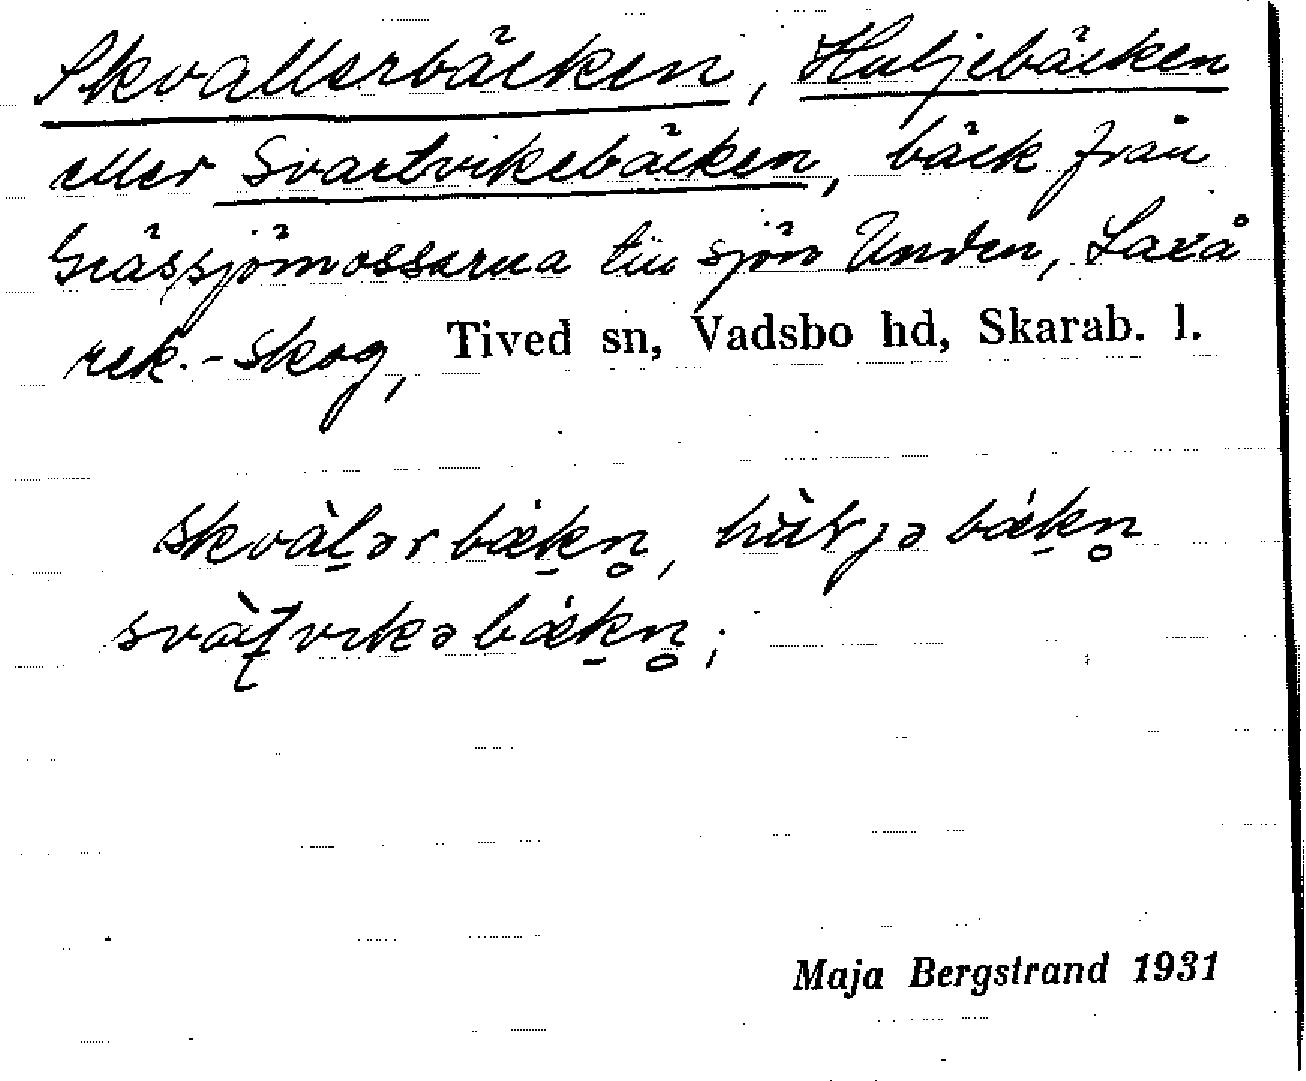 Skvallerbäcken, Huljebäcken
eller Svartvikebäcken, bäck från
Gråssjömossarna till sjön Unden, Laxå
rek.-skog, Tived sn, Vadsbo hd, Skarab. l.
skvàl̠ər bǽk̠n̥,
bǽk̠n̥
bǽk̠n̥;
Maja Bergstrand 1931